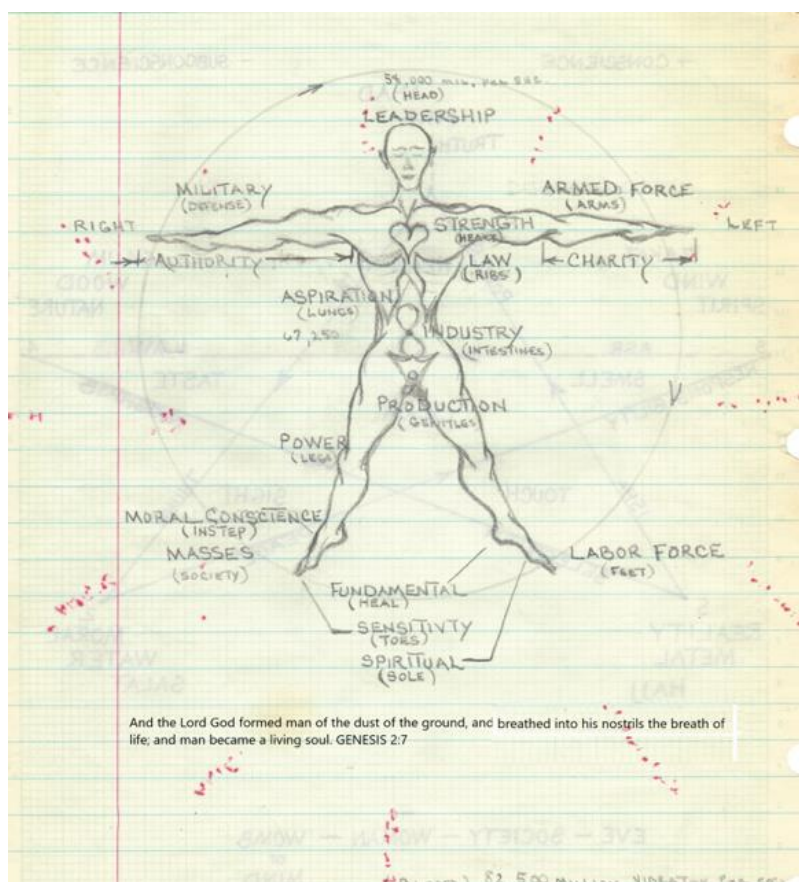 (HEAD)
LEADERSHIP
MILITARY
(DEFENSE)
ARMED FORCE
(ARMS)
RIGHT
STRENGTH
LEFT
AUTHORITY
LAW
(RIBS)
CHARITY
ASPIRATION
(LUNGS)
67,250
INDUSTRY
(INTESTINES)
PRODUCTION
(GENITLES)
POWER
(LEGS)
MORAL CONSCIENCE
(INSTEP)
MASSES
(SOCIETY)
LABOR FORCE
(FEET)
FUNDAMENTAL
(HEAL)
SENSITIVTY
(TOES)
SPIRITUAL
(SOLE)
And the Lord God formed man of the dust of the ground, and breathed into his nostrils the breath of
life; and man became a living soul. GENESIS 2:7